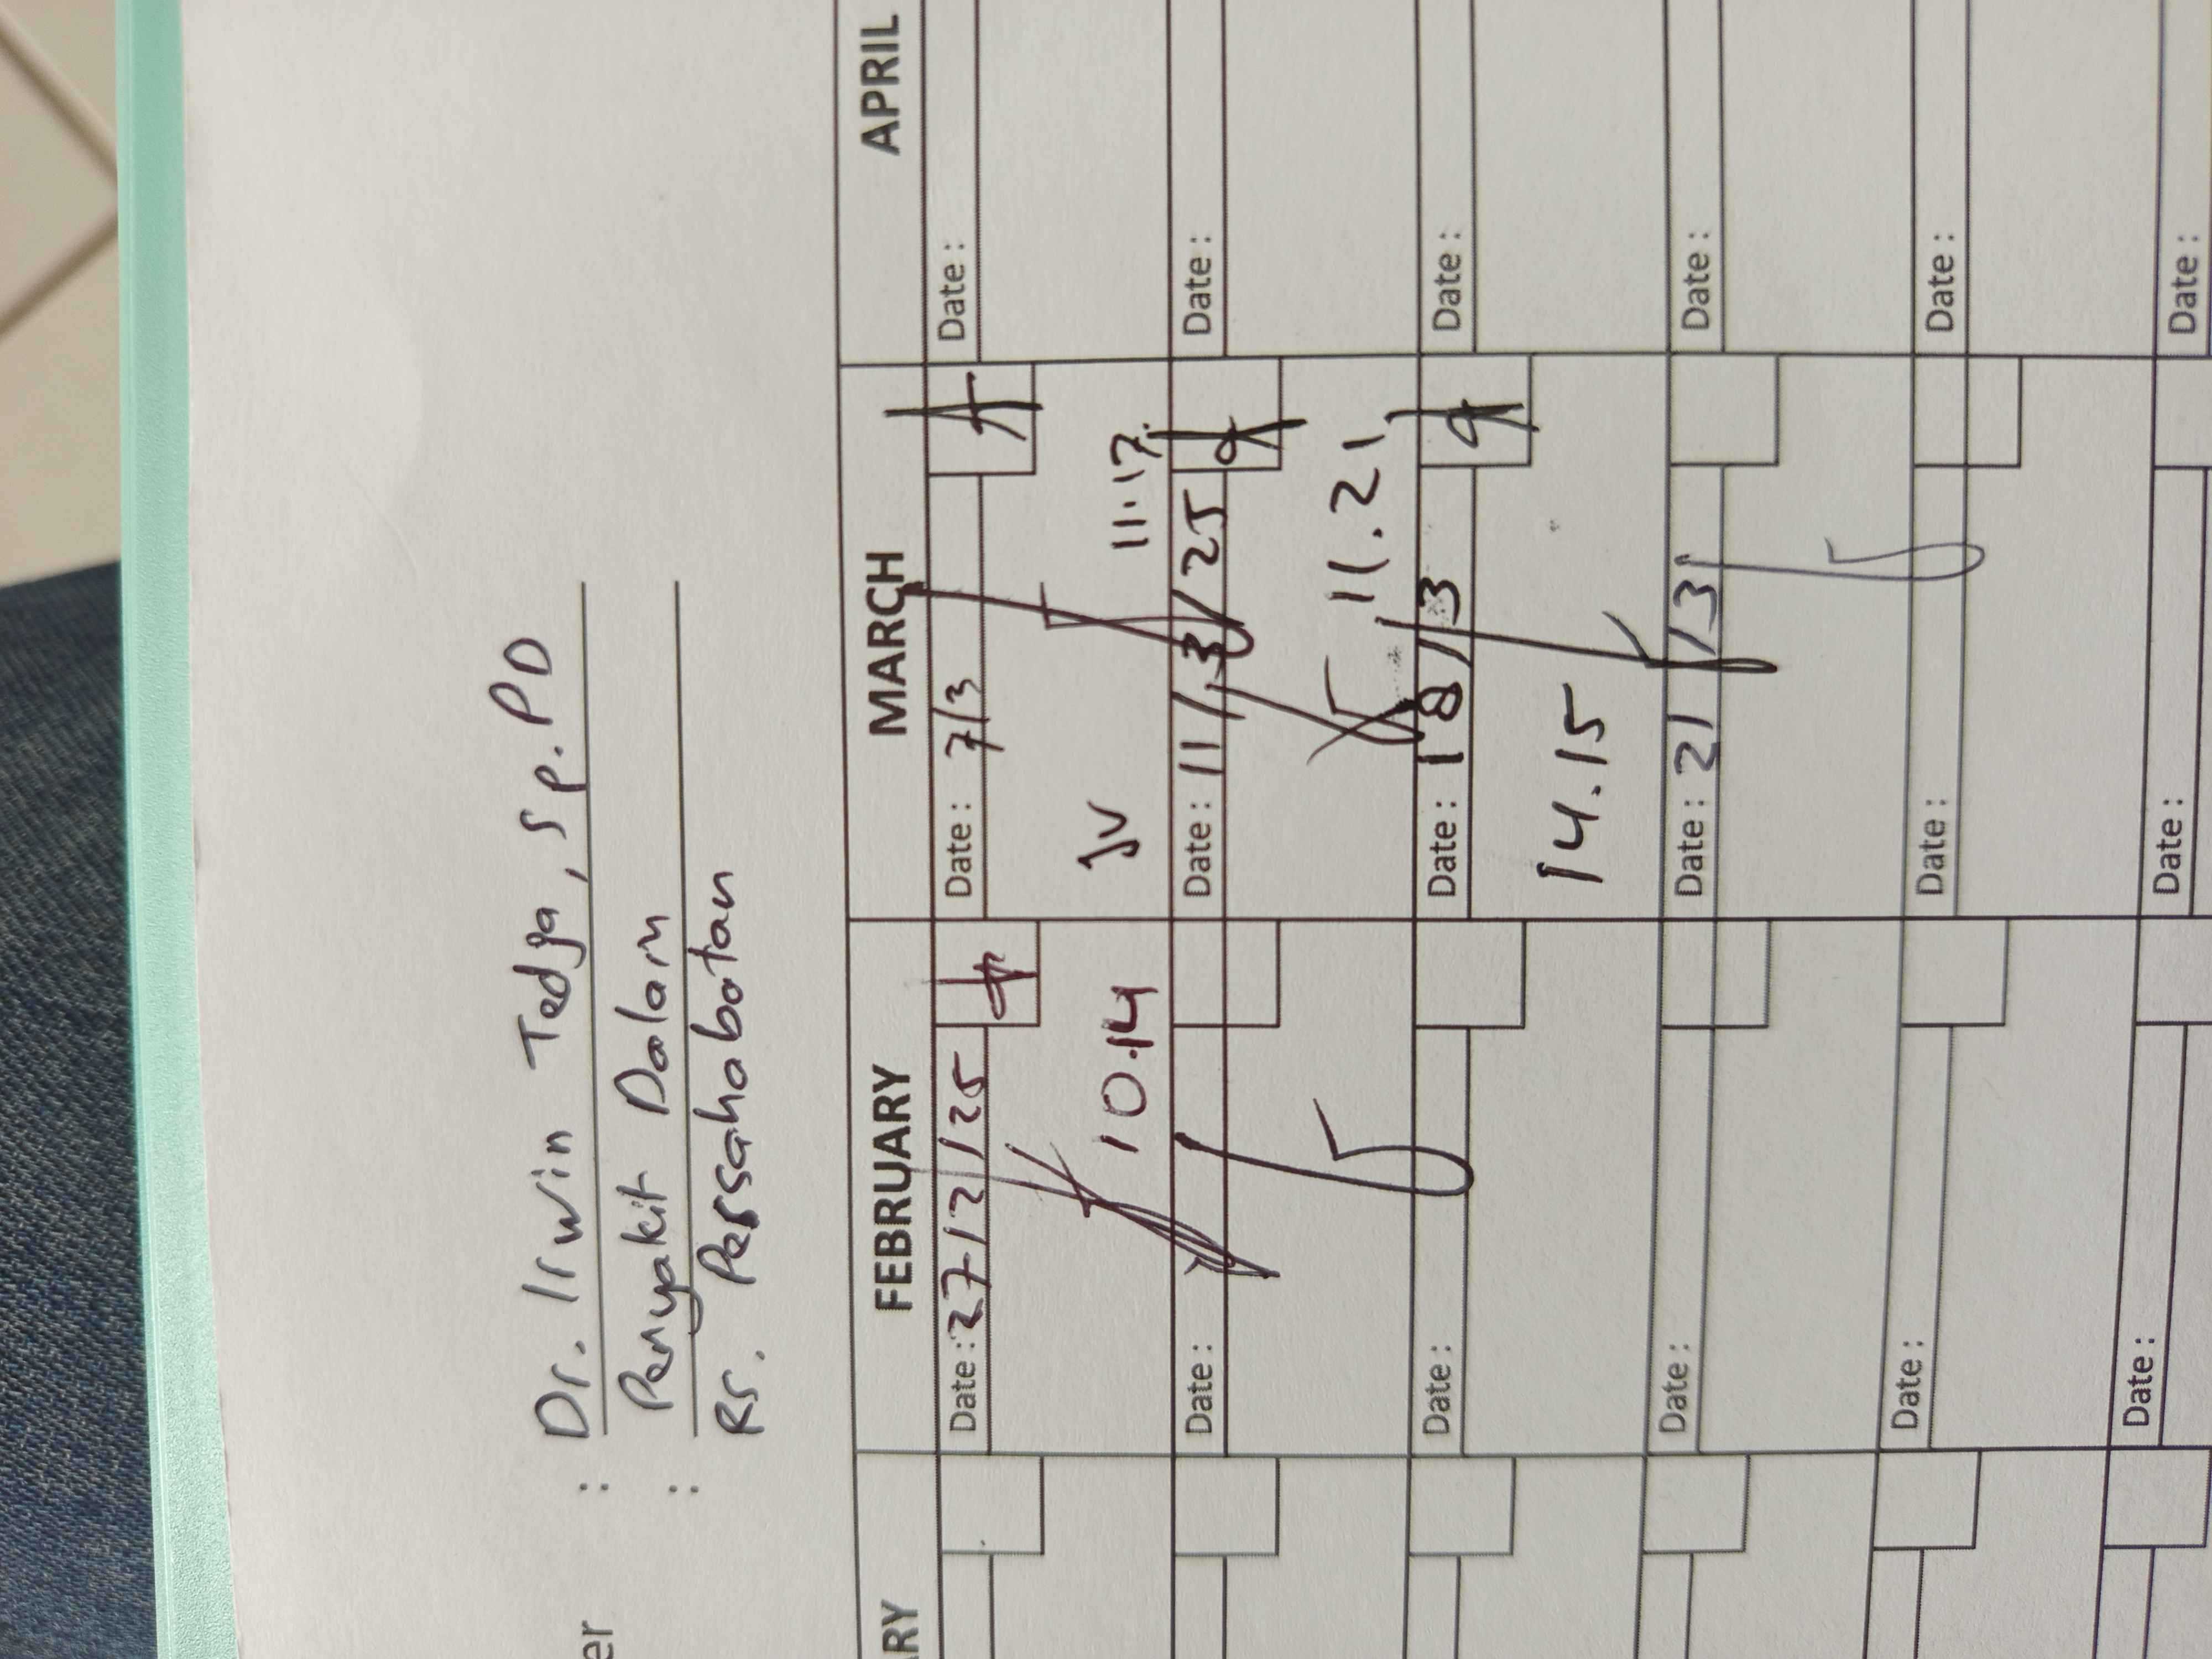 : Dr. Irwin Tedja, Sp.PD
er
: Penyakit Dalam
Rs. Persahabatan
ARY FEBRUARY MARCH APRIL
Date : 27/2/25 Date : 7/3 Date :
10.14 JV 11.17
Date : Date : 11/3/25 Date :
11.21
Date : Date : 18/3 Date :
14.15
Date : Date : 21/3 Date :
Date : Date : Date :
Date : Date : Date :